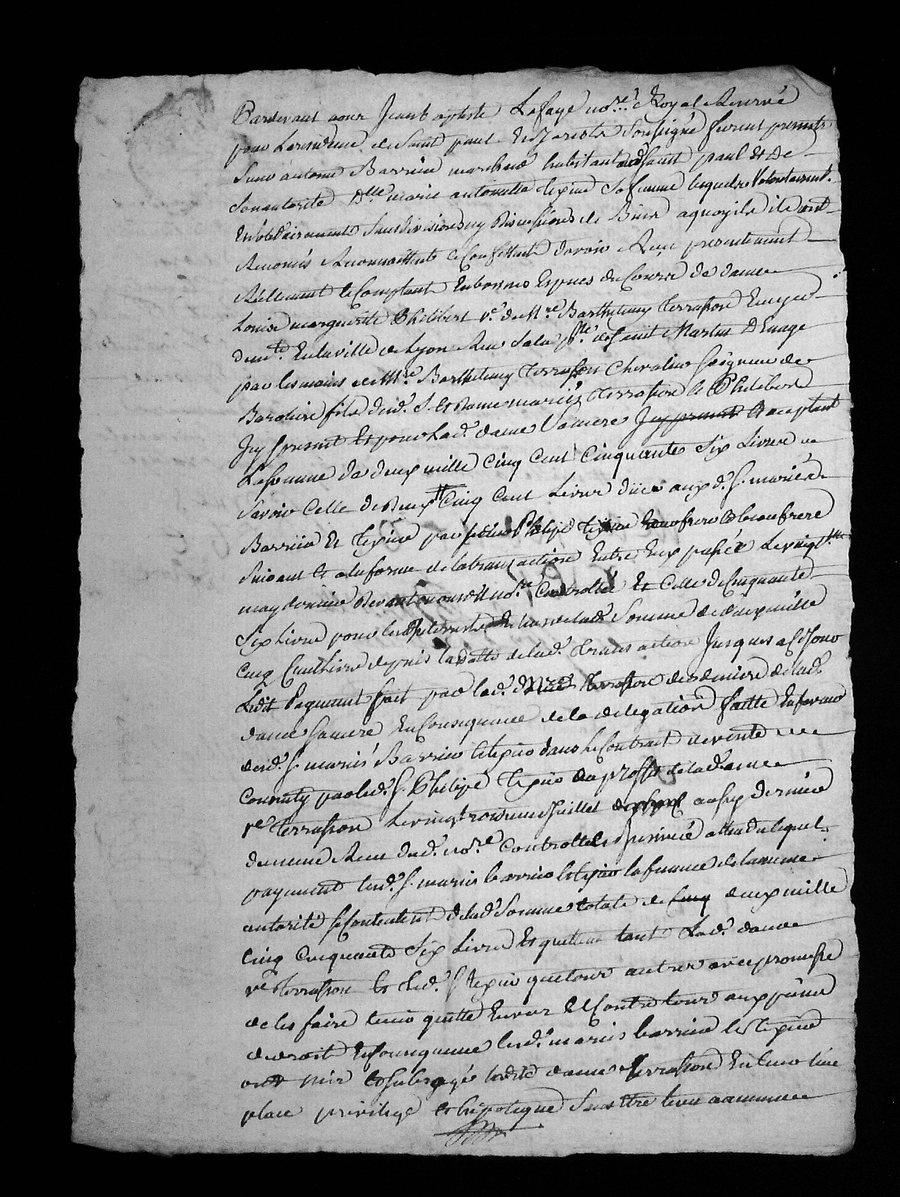 Pardevant nous Jean baptiste Lafage no.re Royal Reservé
pour La residence de Saint paul En Jarest Soussigné furent presents
Sieur antoine Barriere marchand habitant dud. Saint paul Et de
Son autorité D.lle marie antoinette Sa femme lesquels Volontairement
Et Solidairement Sans division ny discussion de Biens aquoy ils ont
Renoncés Reconnoissent & Confessent davoir Reçu presentement
Réellement & Comptant En bonnes Especes du Cours de dame
Louise marguerite Philibert v.e de M.re Barthelemy Terrasson Ecuyer
dem.te En la ville de Lyon Rue Sala p.sse de Saint Martin D'Enage
par les mains de M.re Barthelemy Terrasson Chevalier Seigneur de
Barolière fils dud. S. Et Dame mariés Terrasson & Philibert
Icy present Et pour Lad. dame Sa mere Icy present acceptant
La Somme de deux mille Cinq Cent Cinquante Six Livres
Savoir Celle de deux m Cinq Cent Livres düe aux d. S. mariés
Barriere Et par Philipe frere & beau frere
Suivant & a la forme de la transaction Entre Eux passée Le vingt
may dernier Devant nous no.re Controllée Et Celle de Cinquante
Six Livres pour les Interrests de lad. Somme de deux mille
Cinq Cent Livres depuis la datte de lad. transaction Jusques a Ce Jour
Ledit Payement fait par lad. dame Terrasson des deniers de lad.
dame Sa mere En Consequence de la délégation faitte En faveur
desd. S. mariés Barriere dans le Contrait de vente
Consenty par led. S. Philipe au proffit de lad. dame
v.e Terrasson Le vingt Juillet aussy dernier
Reçu dud. no.re Controllé & attendu lequel
payement lesd. S. mariés barriere la femme de la meme
autorité Se Contentent de lad. Somme totale de Cinq deux mille
Cinq Cinquante Six Livres Et quittent tant Lad. dame
v.e Terrasson & led. S. que tous autres avec promesse
de les faire tenir quitte Envers & Contre tous aux peines
de droit En Consequence lesd. mariés barriere &
ont mis & Subrogée ladite dame Terrasson En leur lieu
place privilege & hipoteque Sans Etre tenu a aucune